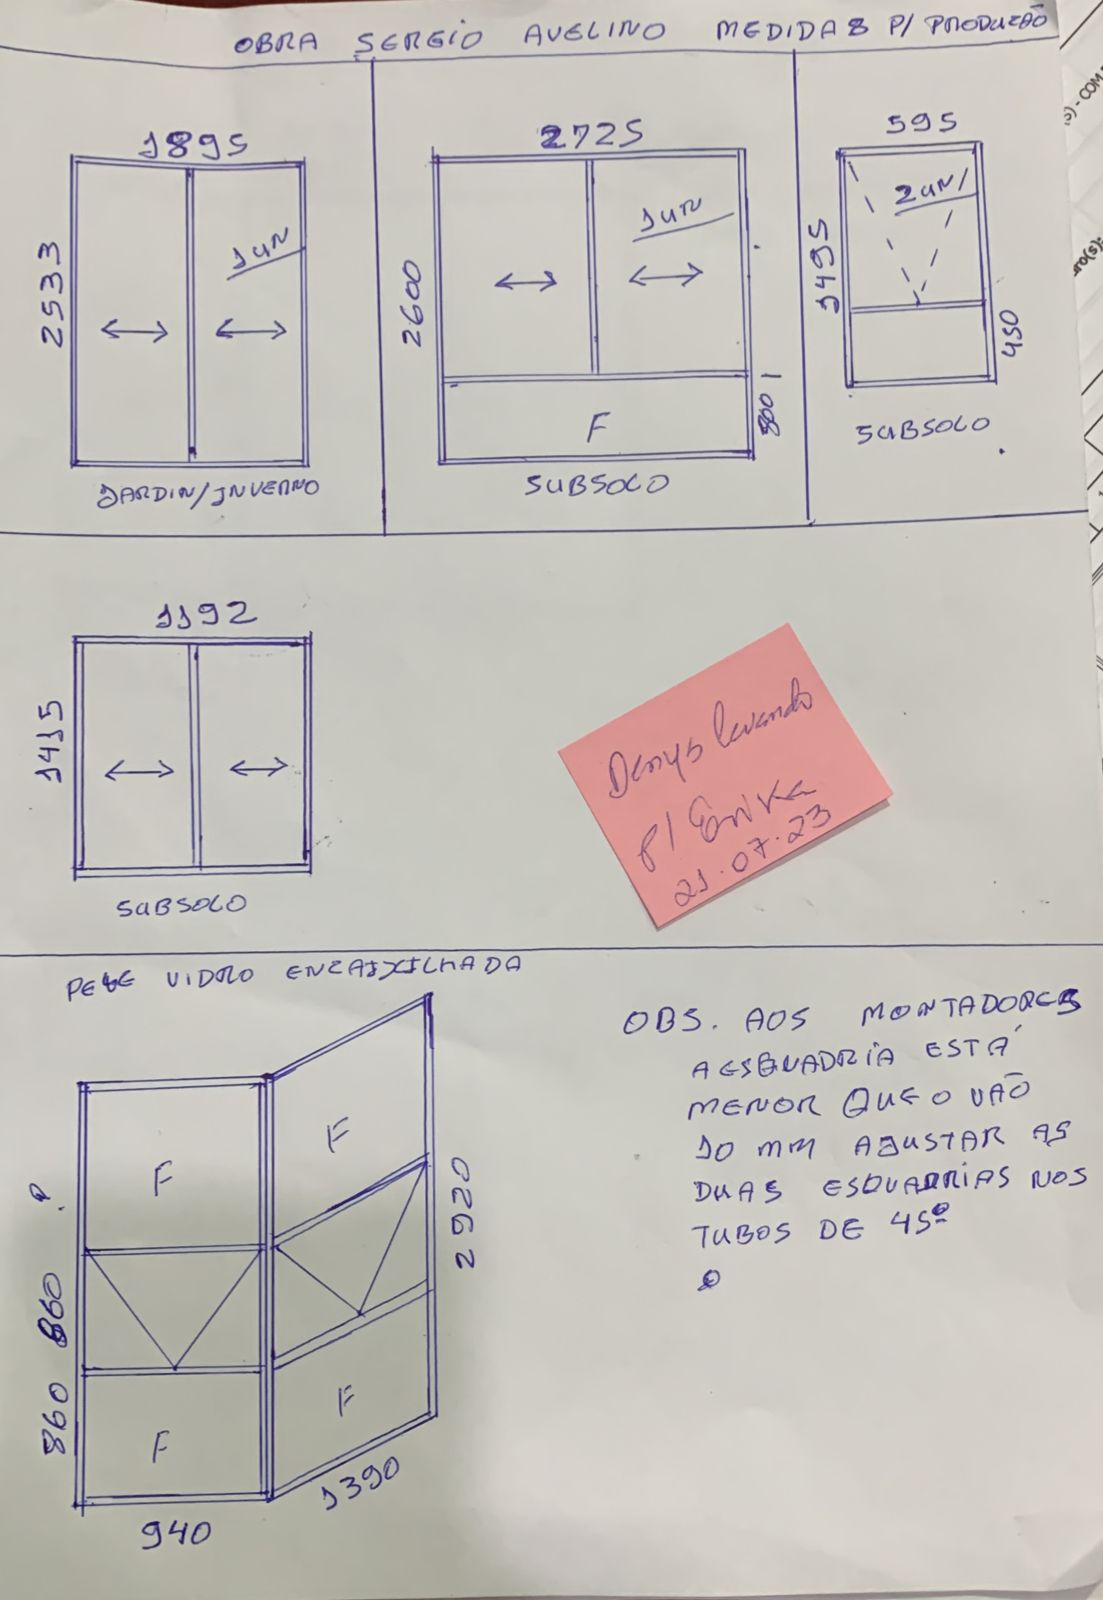 OBRA SERGIO AVELINO MEDIDAS P/ PRODUZÃO
1895
2533
1UN
JARDIN/INVERNO
2725
2600
1UN
F
SUBSOLO
595
1495
2UN/
450
SUBSOLO
1192
1415
SUBSOLO
Denys levando
p/ Erika
21.07.23
PELE VIDRO ENCAIXILHADA
F
F
?
860
860
F
F
2920
940
1390
OBS. AOS MONTADORES
A ESQUADRIA ESTÁ
MENOR QUE O VÃO
10 MM AJUSTAR AS
DUAS ESQUADRIAS NOS
TUBOS DE 45º